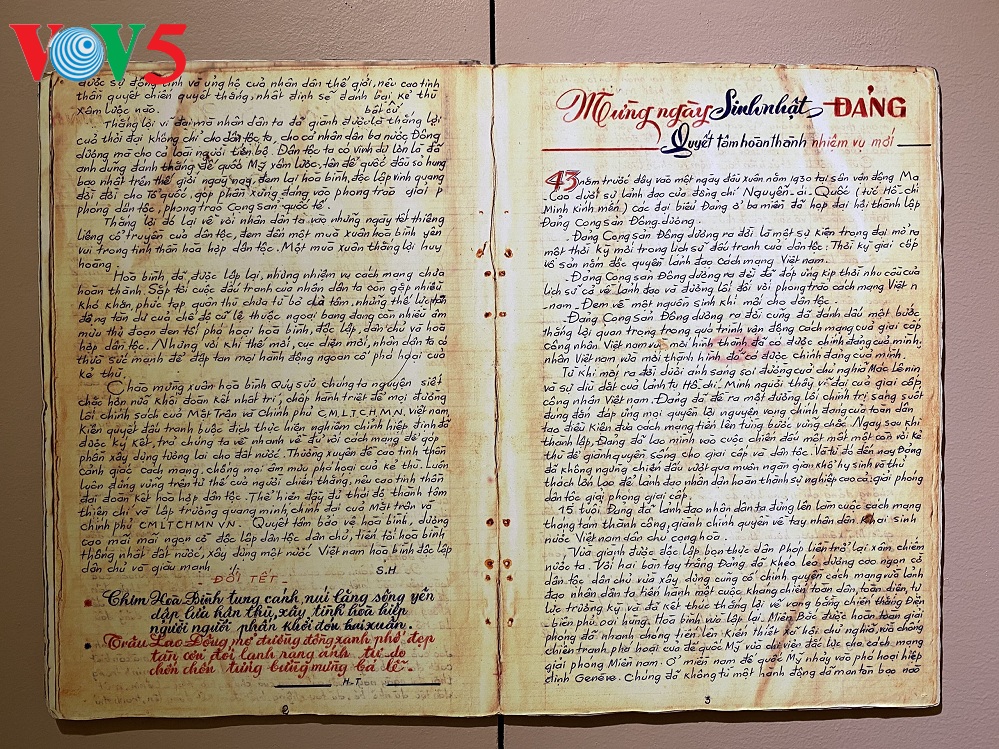 VOV5
được sự đồng tình và ủng hộ của nhân dân thế giới, nêu cao tinh
thần quyết chiến quyết thắng, nhất định sẽ đánh bại kẻ thù
xâm lược nào bất cứ
Thắng lợi vĩ đại mà nhân dân ta đã giành được là thắng lợi
của thời đại không chỉ cho dân tộc ta, cho cả nhân dân ba nước Đông
dương mà cho cả loài người tiến bộ. Dân tộc ta có vinh dự lớn là đã
anh dũng đánh thắng đế quốc Mỹ xâm lược, tên đế quốc đầu sỏ hung
bạo nhất trên thế giới ngày nay, đem lại hoà bình, độc lập vinh quang
đời đời cho Tổ quốc, góp phần xứng đáng vào phong trào giải p
phóng dân tộc, phong trào Cộng sản quốc tế.
Thắng lợi đó lại về với nhân dân ta vào những ngày tết thiêng
liêng cổ truyền của dân tộc, đem đến một mùa xuân hoà bình yên
vui trong tinh thần hoà hợp dân tộc. Một mùa xuân thắng lợi huy
hoàng.
Hoà bình đã được lập lại, nhưng nhiệm vụ cách mạng chưa
hoàn thành. Sắp tới cuộc đấu tranh của nhân dân ta còn gặp nhiều
khó khăn phức tạp quân thù chưa từ bỏ dã tâm, những thế lực phản
động tàn dư của chế độ cũ lệ thuộc ngoại bang đang còn nhiều âm
mưu thủ đoạn đen tối phá hoại hoà bình, độc lập, dân chủ và hoà
hợp dân tộc. Nhưng với khí thế mới, cục diện mới, nhân dân ta có
thừa sức mạnh để đập tan mọi hành động ngoan cố phá hoại của
kẻ thù.
Chào mừng xuân hoà bình Quý sửu chúng ta nguyện siết
chắc hơn nữa khối đoàn kết nhất trí, chấp hành triệt để mọi đường
lối chính sách của Mặt Trận và Chính phủ C.M.L.T.C.H.M.N. việt nam
kiên quyết đấu tranh buộc địch thực hiện nghiêm chỉnh hiệp định đã
được ký kết, trả chúng ta về nhanh về đủ với cách mạng để góp
phần xây dựng tương lai cho đất nước. Thường xuyên đề cao tinh thần
cảnh giác cách mạng. chống mọi âm mưu phá hoại của kẻ thù. Luôn
luôn đứng vững trên tư thế của người chiến thắng, nêu cao tinh thần
đại đoàn kết hoà hợp dân tộc. Thể hiện đầy đủ thái độ thành tâm
thiện chí và lập trường quang minh, chính đại của Mặt trận và
chính phủ C.M.L.T.C.H.M.N V.N. Quyết tâm bảo vệ hoà bình, dương
cao mãi mãi ngọn cờ độc lập dân tộc dân chủ, tiến tới hoà bình
thống nhất đất nước, xây dựng một nước Việt nam hoà bình độc lập
dân chủ và giàu mạnh !.
S.H.
- ĐỐI TẾT -
Chim Hoà Bình tung cánh, núi lặng sông yên
dập lửa hận thù, xây tình hoà hiệp
người người phấn khởi đón vui xuân.
Trâu Lao Động mở đường đồng xanh phố đẹp
tan cơn đói lạnh rạng ánh tự do
chốn chốn tưng bừng mừng ba lễ.
H-T
2
Mừng ngày Sinh nhật ĐẢNG
Quyết tâm hoàn thành nhiệm vụ mới
43 năm trước đây vào một ngày đầu xuân năm 1930 tại sân vận động Ma
- Cao dưới sự lãnh đạo của đồng chí Nguyễn - ái - Quốc (tức Hồ - chí
Minh kính mến) các đại biểu Đảng ở ba miền đã họp đại hội thành lập
Đảng Cộng sản Đông dương.
. Đảng Cộng Sản Đông dương ra đời là một sự kiện trọng đại mở ra
một thời kỳ mới trong lịch sử đấu tranh của dân tộc. Thời kỳ giai cấp
vô sản nắm độc quyền lãnh đạo cách mạng Việt nam.
. Đảng Cộng Sản Đông dương ra đời đã đáp ứng kịp thời nhu cầu của
lịch sử cả về lãnh đạo và đường lối đối với phong trào cách mạng Việt n
- nam - Đem về một nguồn sinh khí mới cho dân tộc.
. Đảng Cộng Sản Đông dương ra đời cũng đã đánh dấu một bước
thắng lợi quan trọng trong quá trình vận động cách mạng của giai cấp
công nhân Việt nam vừa mới hình thành đã có được chính đảng của mình.
nhân Việt nam vừa mới thành hình, đã có được chính đảng của mình.
Từ khi mới ra đời dưới ánh sáng soi đường của chủ nghĩa Mác Lê nin
và sự dìu dắt của lãnh tụ Hồ chí Minh người thầy vĩ đại của giai cấp
công nhân Việt nam. Đảng đã đề ra một đường lối chính trị sáng suốt
đúng đắn đáp ứng mọi quyền lợi nguyện vọng chính đáng của toàn dân
tạo điều kiện đưa cách mạng tiến lên từng bước vững chắc. Ngay sau khi
thành lập, Đảng đã lao mình vào cuộc chiến đấu một mất một còn với kẻ
thù để giành quyền sống cho giai cấp và dân tộc. Và từ đó đến nay Đảng
đã không ngừng chiến đấu vượt qua muôn ngàn gian khổ hy sinh và thử
thách lớn lao để lãnh đạo nhân dân hoàn thành sự nghiệp cao cả: giải phóng
dân tộc giải phóng giai cấp.
15 tuổi Đảng đã lãnh đạo nhân dân ta đứng lên làm cuộc cách mạng
tháng tám thành công, giành chính quyền về tay nhân dân. Khai sinh
nước Việt nam dân chủ cộng hoà.
Vừa giành được độc lập bọn thực dân Pháp liền trở lại xâm chiếm
nước ta. Với hai bàn tay trắng Đảng đã khéo léo dương cao ngọn cờ
dân tộc dân chủ vừa xây dựng củng cố chính quyền cách mạng vừa lãnh
đạo nhân dân tiến hành một cuộc kháng chiến toàn dân, toàn diện, tự
lực trường kỳ và đã kết thúc thắng lợi vẻ vang bằng chiến thắng Điện
- biên phủ oai hùng. Hoà bình vừa lập lại. Miền Bắc được hoàn toàn giải
phóng đã nhanh chóng tiến lên kiến thiết xã hội chủ nghĩa, vừa chống
chiến tranh phá hoại của đế quốc Mỹ vừa chi viện đắc lực cho cách mạng
giải phóng Miền nam. Ở miền nam đế quốc Mỹ nhảy vào phá hoại hiệp
định Genève. Chúng đã không từ một hành động dã man tàn bạo nào
3